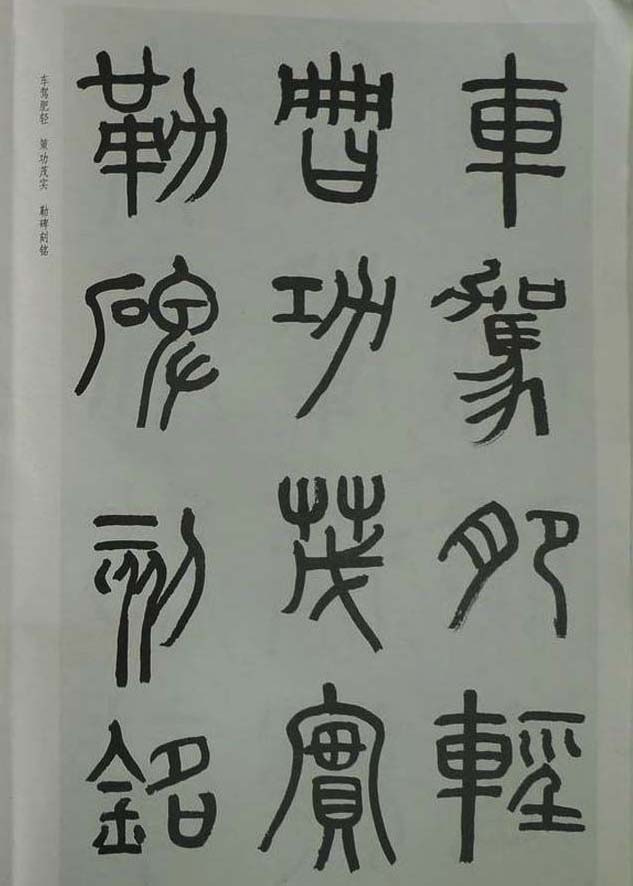 車駕肥輕
策功茂實
勒碑刻銘
车驾肥轻 策功茂实 勒碑刻铭